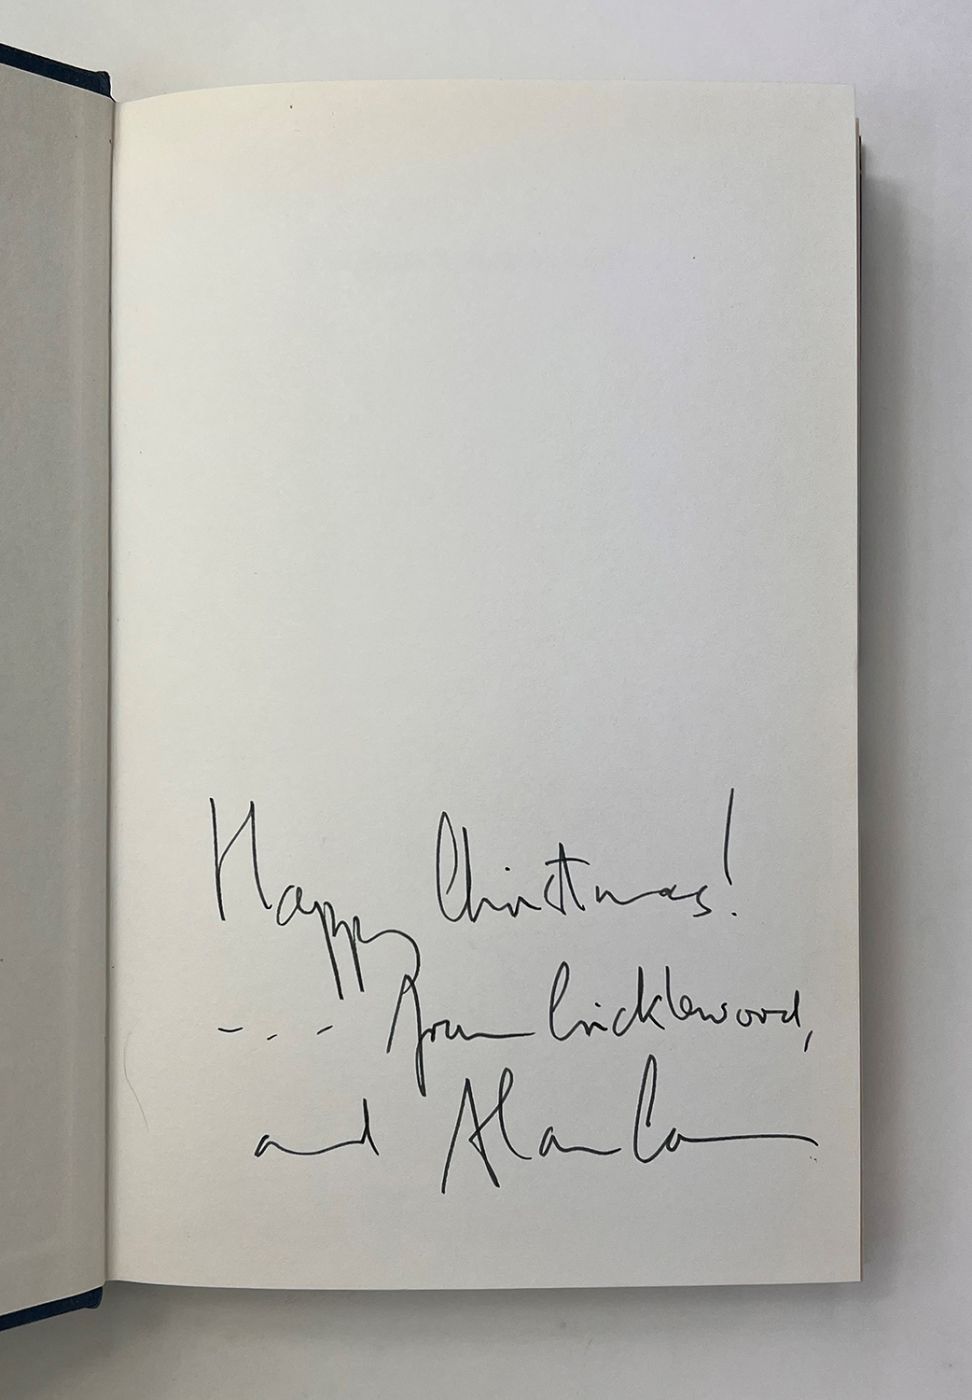 Happy Christmas!
- . . - from Cricklewood,
and Alan